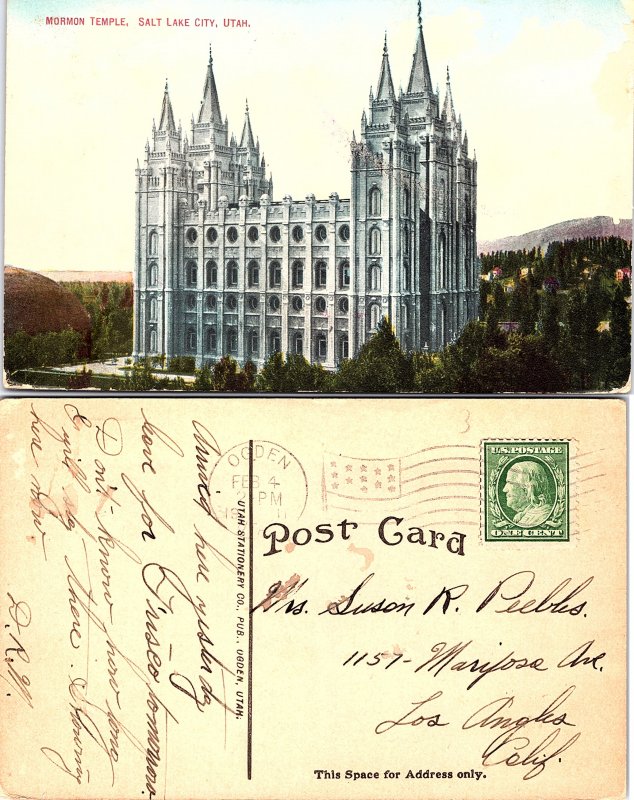 MORMON TEMPLE, SALT LAKE CITY, UTAH.
Arriv'd here yesterday
leave for Frisco tomorrow.
Don't know how long
I will be there. Snowing
here now
D.R.W.
UTAH STATIONERY CO., PUB., OGDEN, UTAH.
OGDEN
FEB 4
PM
U.S. POSTAGE
ONE CENT
Post Card
Mrs. Susan R. Peebles.
1157 - Mariposa Ave.
Los Angles
Calif.
This Space for Address only.
3